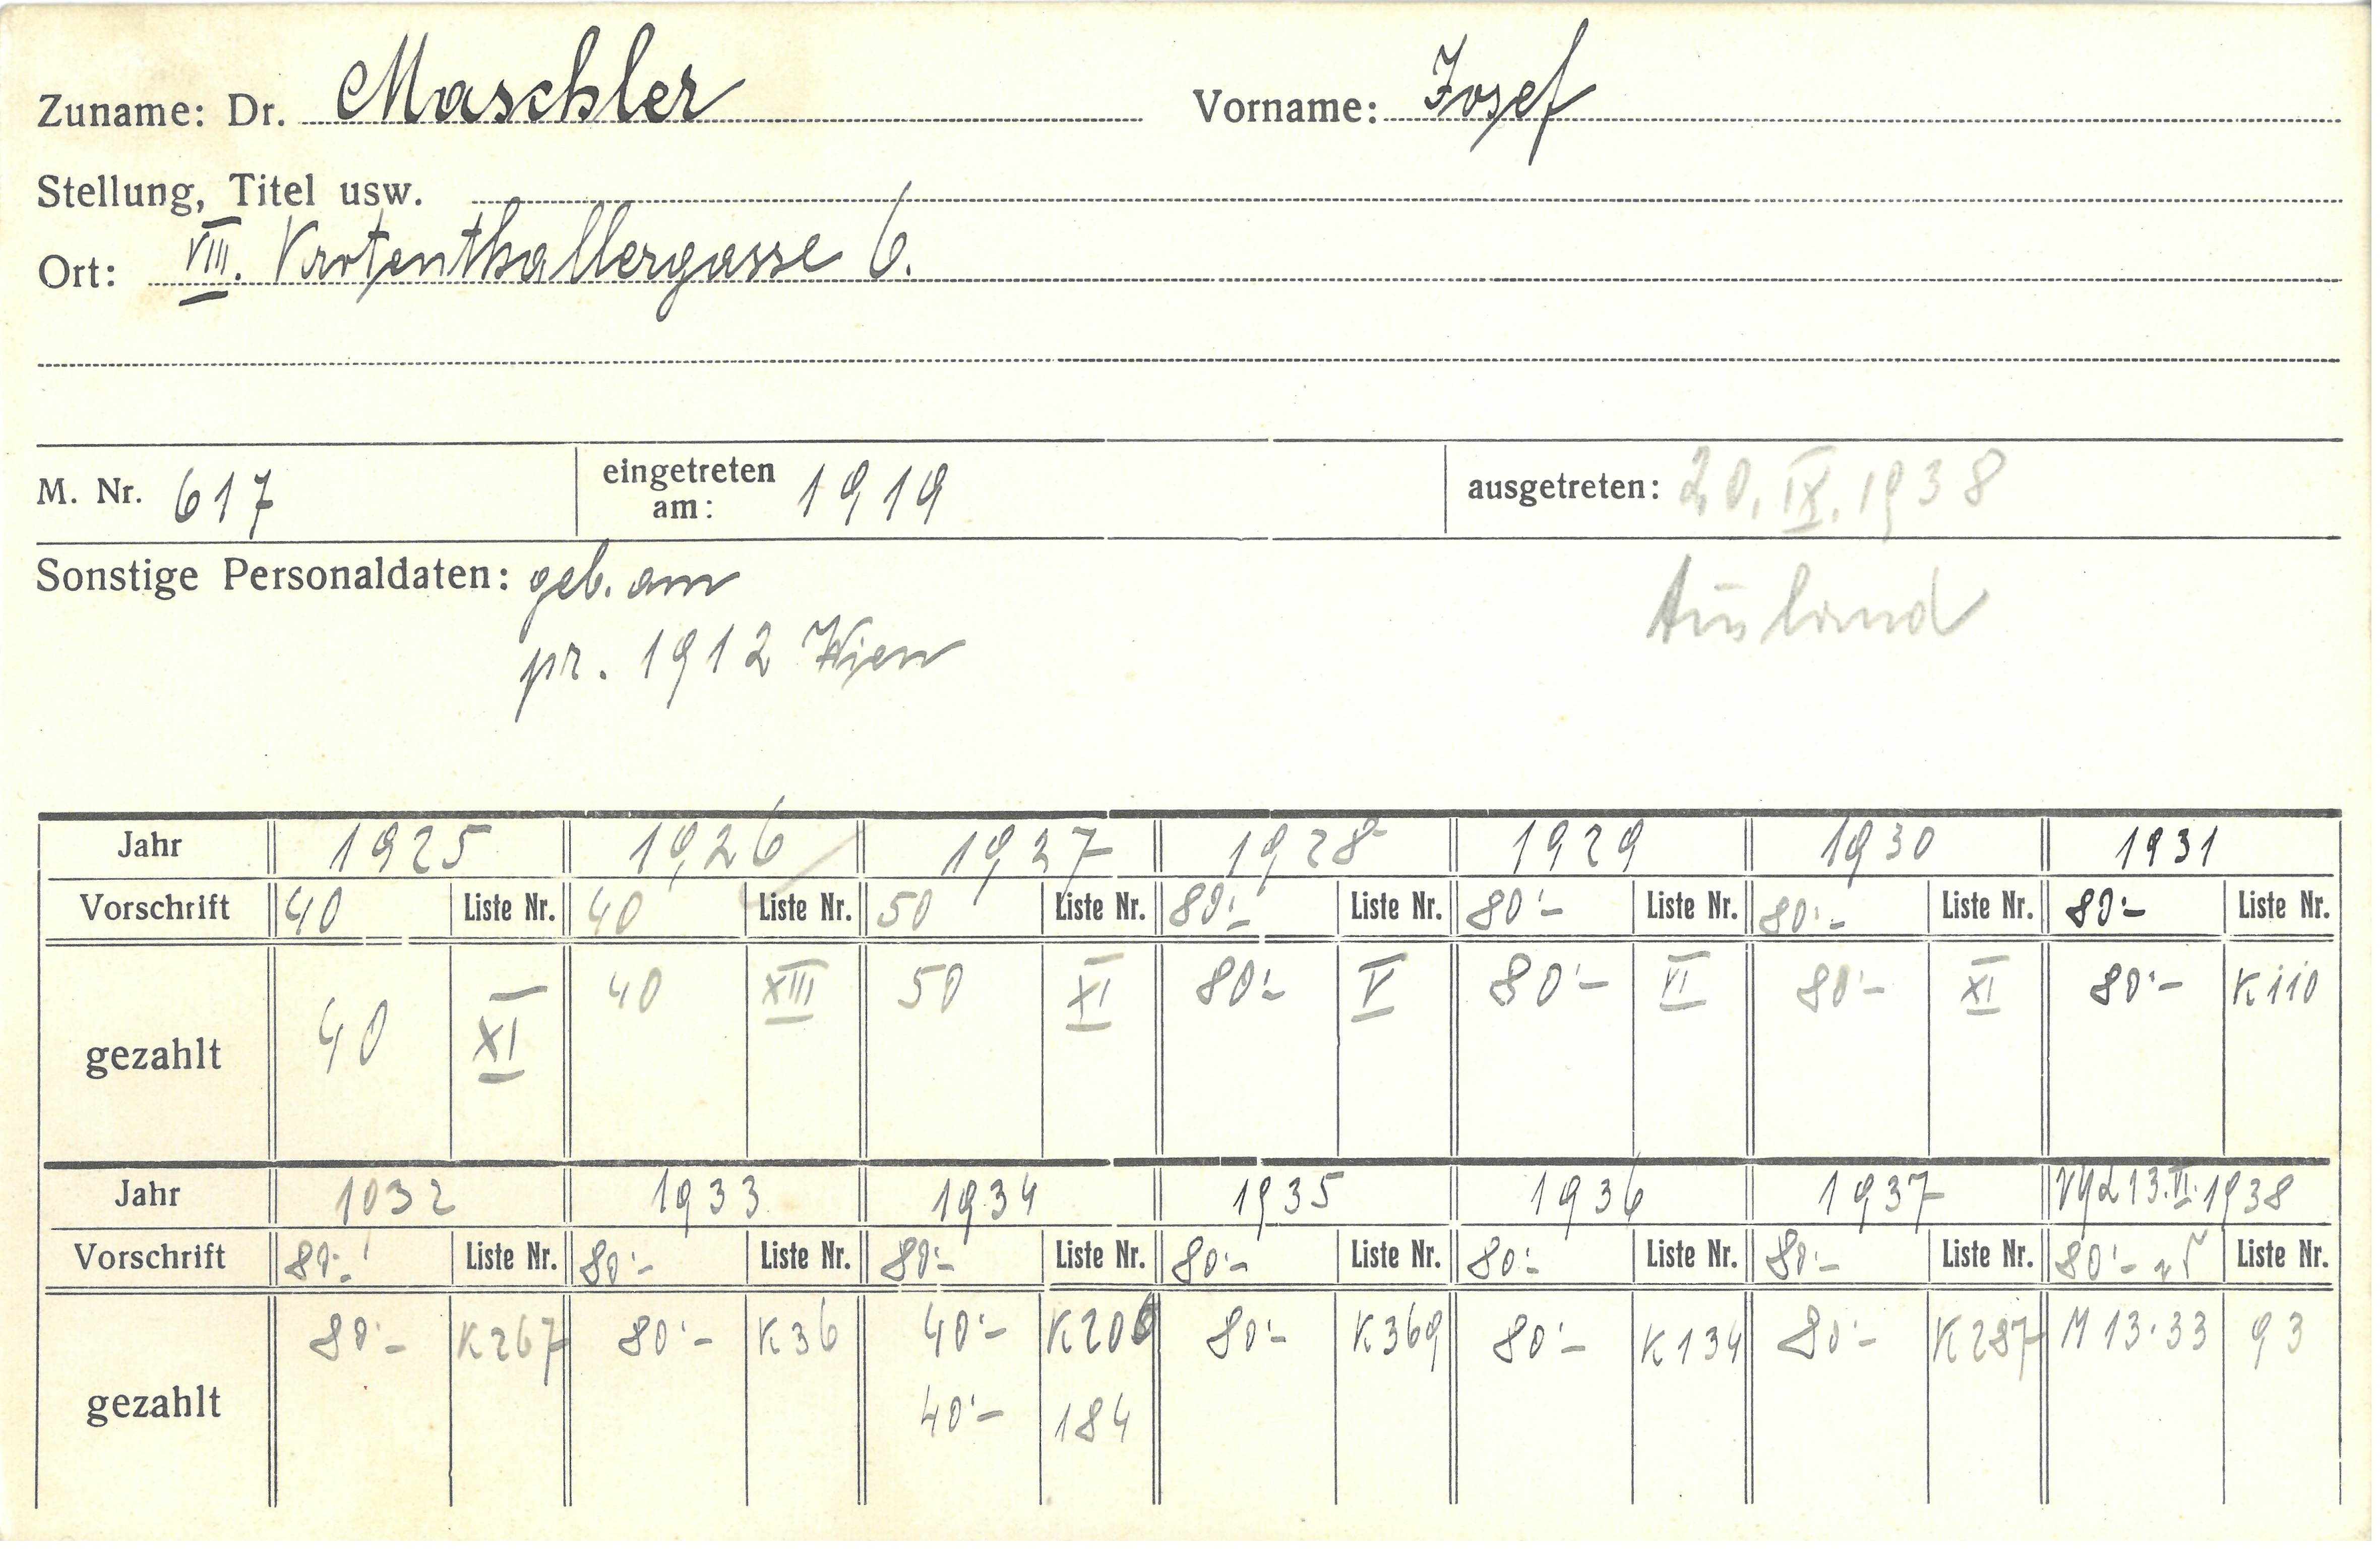 Zuname: Dr. Maschler Vorname: Josef
Stellung, Titel usw.
Ort: VIII. Krotenthallergasse 6.
M. Nr. 617 eingetreten am: 1919 ausgetreten: 20. IX. 1938
Sonstige Personaldaten: geb. am Ausland
pr. 1912 Wien
Jahr 1925 1926 1937 1928 1929 1930 1931
Vorschrift 40 Liste Nr. 40 Liste Nr. 50 Liste Nr. 80'- Liste Nr. 80'- Liste Nr. 80'- Liste Nr. 80'- Liste Nr.
gezahlt 40 XI 40 XIII 50 XI 80'- V 80'- VI 80'- XI 80'- K 110
Jahr 1032 1933 1934 1935 1936 1937 13. 1938
Vorschrift 80'- Liste Nr. 80'- Liste Nr. 80'- Liste Nr. 80'- Liste Nr. 80'- Liste Nr. 80'- Liste Nr. 80'- Liste Nr.
80'- K 267 80'- K 36 40'- K 206 80'- K 369 80'- K 134 80'- K 287 M 13.33 93
gezahlt 40'- 184